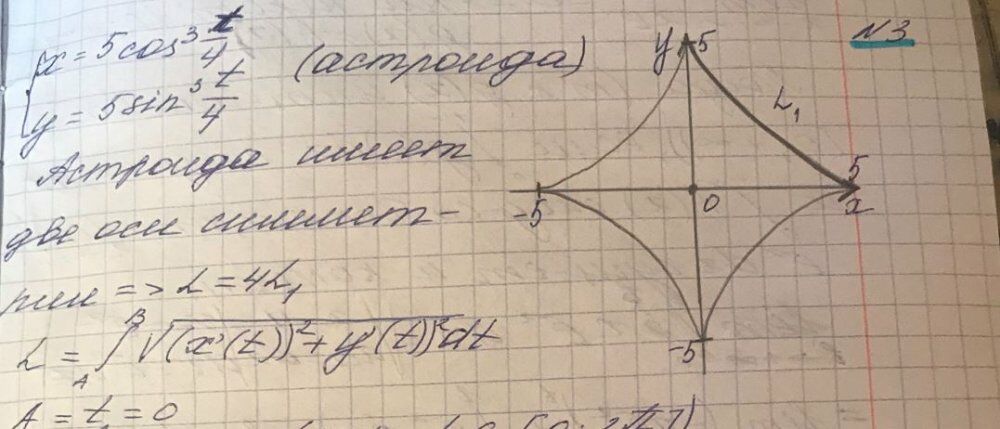 N3
{x = 5cos³ t/4
y = 5sin³ t/4
(астроида)
Астроида имеет
две оси симмет-
рии => L = 4L₁
L = ∫ᴬᴮ √(x'(t))² + y'(t))² dt
A = t = 0
y 5
L₁
5
x
-5
0
-5